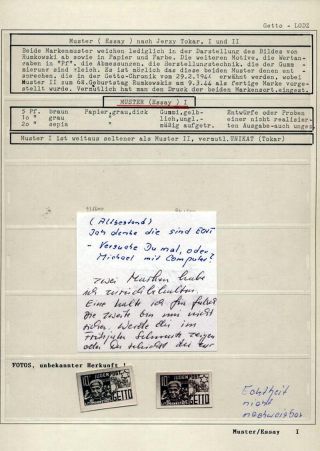 Getto - LODZ
Muster (Essay) nach Jerzy Tokar, I und II
Beide Markenmuster weichen lediglich in der Darstellung des Bildes von
Rumkowski ab sowie in Papier und Farbe. Die weiteren Motive, die Wertan-
gaben in "Pf". die Abmessungen, die Herstellungstechnik, die der Gummi
ierung sind gleich. Es ist möglich das diese beiden Marken den Essay dar-
stellen die in der Getto-Chronik vom 29.2.1944 erwähnt werden, wobei
Muster II zum 68.Geburtstag Rumkowski am 9.3.44 als fertige Marke vorlag
ist. Vermutlich hat man den Druck der beiden Markensort.eingest.
MUSTER (Essay) I
5 Pf. braun Papier,grau,dick Gummi,gelb- Entwürfe oder Proben
10 " grau lich,ungl.- einer nicht realisier-
20 " sepia " " mäßig aufgetr. ten Ausgabe-auch unges
Muster I ist weitaus seltener als Muster II, vermutl.UNIKAT (Tokar)
(Altbestand)
Ich denke die sind Echt
- Versuche Du mal, oder
Michael mit Computer?
zwei Marken habe
ich zurückbehalten.
Eine halte ich für falsch
die zweite bin mir nicht
sicher. Werde die im
zeigen
oder
FOTOS, unbekannter Herkunft !
10 JUDENPOST
GETTO
10 JUDENPOST
GETTO
Echtheit
nicht
nachweisbar
Muster/Essay I